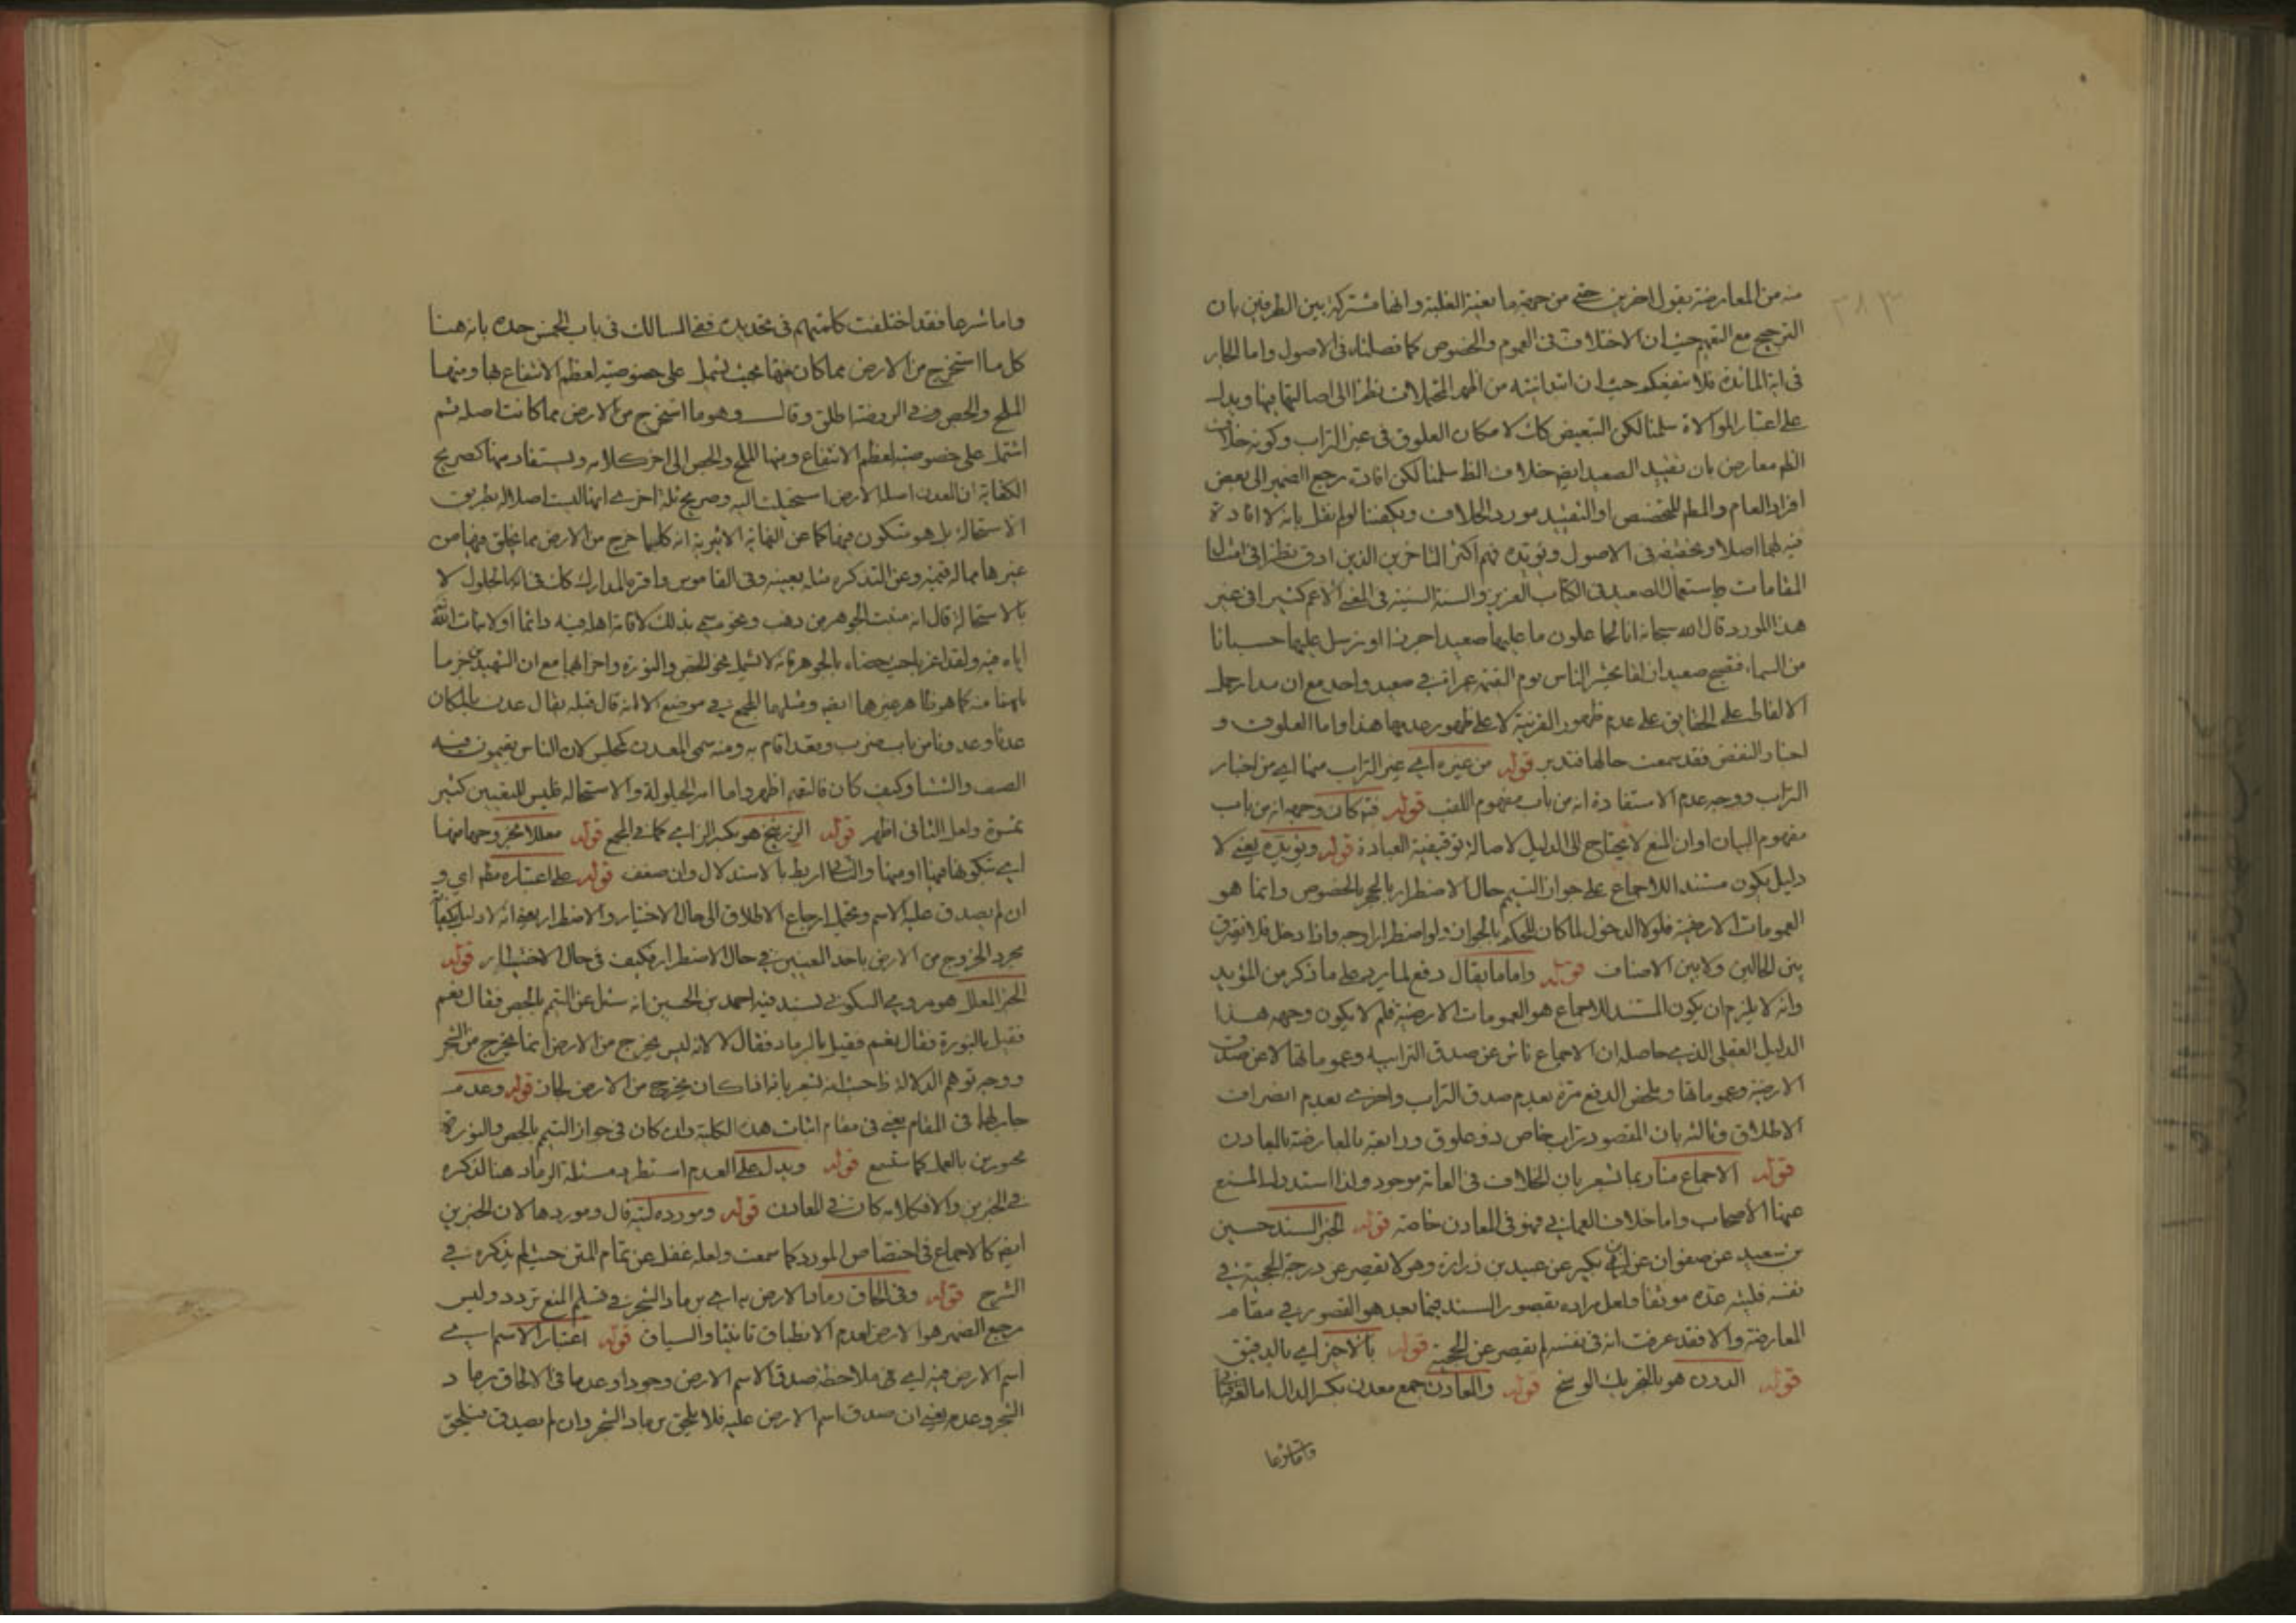 منه من المعارضة بقول اخرين حتى من جهة ما بعينه الغلبة وانها مشتركة بين الطرفين بان
الترجيح مع التعميم حيث ان الاختلاف فى العموم والخصوص كما فصلناه فى الاصول واما الجار
فى اية المائدة فلا ينفعكم حيث ان ابتدائيته من اظهر المحتملات نظرا الى اصالتها فيها ويدل
على اعتبار الموالاة سلمنا لكن التبعيض كان لامكان العلوق فى غير التراب وكونه خلاف
الظم معارض بان تقييد الصعيد ايض خلاف الظ سلمنا لكن افادت رجع الضمير الى بعض
افراد العام والمطم للتخصص او التقييد مورد الخلاف ويكفينا لو لم نقل بانه لا افادة
فيه لهما اصلا وتحقيقه فى الاصول ويؤيده فهم اكثر المتاخرين الذين ادق نظرا فى امثال
المقامات واستعمال الصعيد فى الكتاب العزيز والسنة السنية فى المعنى الاعم كثيرا فى غير
هذا المورد قال الله سبحانه انا لجاعلون ما عليها صعيدا جرزا او يرسل عليها حسبانا
من السماء فتصبح صعيدا زلقا يحشر الناس يوم القيمة عراة فى صعيد واحد مع ان مدار حمل
الالفاظ على الحقايق على عدم ظهور القرنية لا على ظهور عدمها هذا واما العلوق و
اخبار النفض فقد سمعت حالها فتدبر قوله من غيره اى غير التراب منها اى من اخبار
التراب ووجه عدم الاستفادة انه من باب مفهوم اللقب قوله فيه كان وجهه انه من باب
مفهوم البيان او ان المنع لا يحتاج الى الدليل لاصالة توقيفية العبادة قوله ويؤيده يعنى لا
دليل يكون مستندا للاجماع على جواز التيمم حال الاضطرار بالحجر بالخصوص وانما هو
العمومات الارضية فلولا الدخول لما كان للحكم بالجواز ولو اضطرارا وجه واذا دخل فلا نفرق
بين الحالين ولا بين الاصناف قوله واما ما يقال دفع لما يرد على ما ذكر من المؤيد
وانه لا يلزم ان يكون المستند للاجماع هو العمومات الارضية فلم لا يكون وجهه هذا
الدليل العقلى الذى حاصله ان الاجماع ناش عن صدق الترابية وعموماتها لا عن صدق
الارضية وعموماتها وملخص الدفع مرة بعدم صدق التراب واخرى بعدم انصراف
الاطلاق وثالثة بان المقصود تراب خاص ذو علوق ورابعة بالمعارضة بالمعادن
قوله الاجماع منا ربما يشعر بان الخلاف فى العامة موجود ولذا استدل للمنع
عنها الاصحاب واما خلاف العمانى فهو فى المعادن خاصة قوله الخبر السند حسين
بن سعيد عن صفوان عن ابن بكير عن عبيد بن زرارة وهو لا تقصر عن درجة الحجية فى
نفسه فليته عده موثقا ولعل مراده بقصور السند فيما بعد هو القصور فى مقام
المعارضة والا فقد عرفت انه فى نفسه لم يقصر عن الحجية قوله بالاخر اى بالدقيق
قوله الدرن هو بالتحريك الوسخ قوله والمعادن جمع معدن بكسر الدال اما لغة
واما شرعا
واما شرعا فقد اختلفت كلمتهم فى تحديده ففى المسالك فى باب الخمس حده بانه هنا
كل ما استخرج من الارض مما كان منها بحيث يشمل على خصوصية لعظم الانتفاع بها ومنها
الملح والجص وفى الروضة اطلق وقال وهو ما استخرج من الارض مما كانت اصله ثم
اشتمل على خصوصية لعظم الانتفاع ومنها الملح والجص الى اخر كلامه ويستفاد منها كصريح
الكفاية ان المعدن اصلها الارض استحيلت اليه وصريح ثلة اخرى انها ليست اصلا له بطريق
الاستحالة بل هو متكون فيها كما عن النهاية الاثيرية انه كلما خرج من الارض مما يخلق فيها من
غيرها مما له قيمة وعن التذكره مثله بعينه وفى القاموس واقره المدارك كان فى انه الحلول لا
بالاستحالة قال انه منبت الجوهر من ذهب ونحوه سمى بذلك لاقامة اهله فيه دائما او لانبات الله
اياه فيه ولقد اغربا حيث خصاه بالجوهر فانه لا يشمل نحو الجص والنورة واحزابهما مع ان الشهيدين جزما
بانهما منه كما هو ظاهر غيرهما ايض ومثلهما المجمع فى موضع الا انه قال قبله يقال عدن بالمكان
عدنا وعدونا من باب ضرب وقعد اقام به ومنه سمى المعدن كمجلس لان الناس يقيمون فيه
الصيف والشتاء وكيف كان فالتعميم اظهر واما امر الحلولية والاستحالة فليس للتعيين كثير
ثمرة ولعل الثانى اظهر قوله الزرنيخ هو بكسر الزاى كما فى المجمع قوله معللا بخروجها منها
اى بتكونها فيها او منها والثانى اربط بالاستدلال وان ضعف قوله على اعتباره مطم اى و
ان لم يصدق عليه الاسم ويحتمل ارجاع الاطلاق الى حال الاختيار والاضطرار يعنى انه لا دليل يكفينا
مجرد الخروج من الارض باحد المعنيين فى حال الاضطرار فكيف فى حال الاختيار قوله
الخبر المعلل هو مروى السكونى بسند فيه احمد بن الحسين انه سئل عن التيمم بالجص فقال نعم
فقيل بالنورة فقال نعم فقيل بالرماد فقال لا لانه ليس يخرج من الارض انما يخرج من الشجر
ووجه توهم الدلالة ظ حيث انه يشعر بانه اذا كان يخرج من الارض لجاز قوله وعدم
جابر لهما فى المقام يعنى فى مقام اثبات هذه الكلية وان كان فى جواز التيمم بالجص والنورة
مجبورين بالعمل كما ستسمع قوله ويدل على العدم استطرد مسئلة الرماد هنا لذكره
فى الخبرين والا فكلامه كان فى المعادن قوله ومورده ليته قال وموردها لان الخبرين
ايض كالاجماع فى اختصاص المورد كما سمعت ولعله غفل عن تمام المتن حيث لم يذكره فى
الشرح قوله وفى الحاق رماد الارض به اى برماد الشجر فى تسليم المنع تردد وليس
مرجع الضمير هو الارض لعدم الانطباق تانيثا والسياق قوله اعتبار الاسم اى
اسم الارض فيه اى فى ملاحظة صدق الاسم الارض وجودا وعدما فى الالحاق برماد
الشجر وعدمه يعنى ان صدق اسم الارض عليه فلا يلحق برماد الشجر وان لم يصدق فيلحق